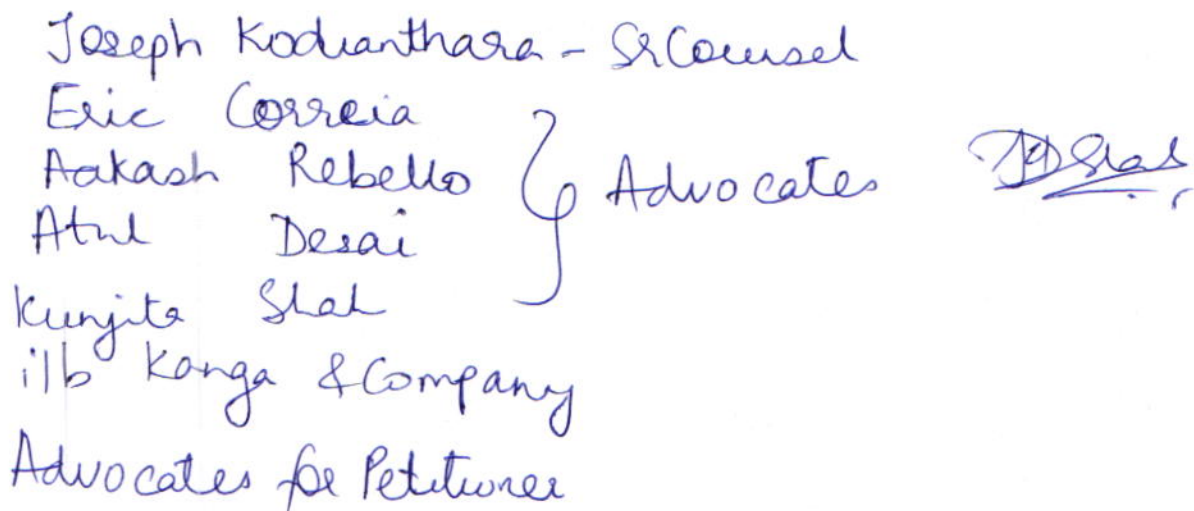 Joseph Kodianthara - Sr Counsel
Eric Correia
Aakash Rebello } Advocates
Atul Desai
Kunjita Shah
i/b Kanga & Company
Advocates for Petitioner
Shah